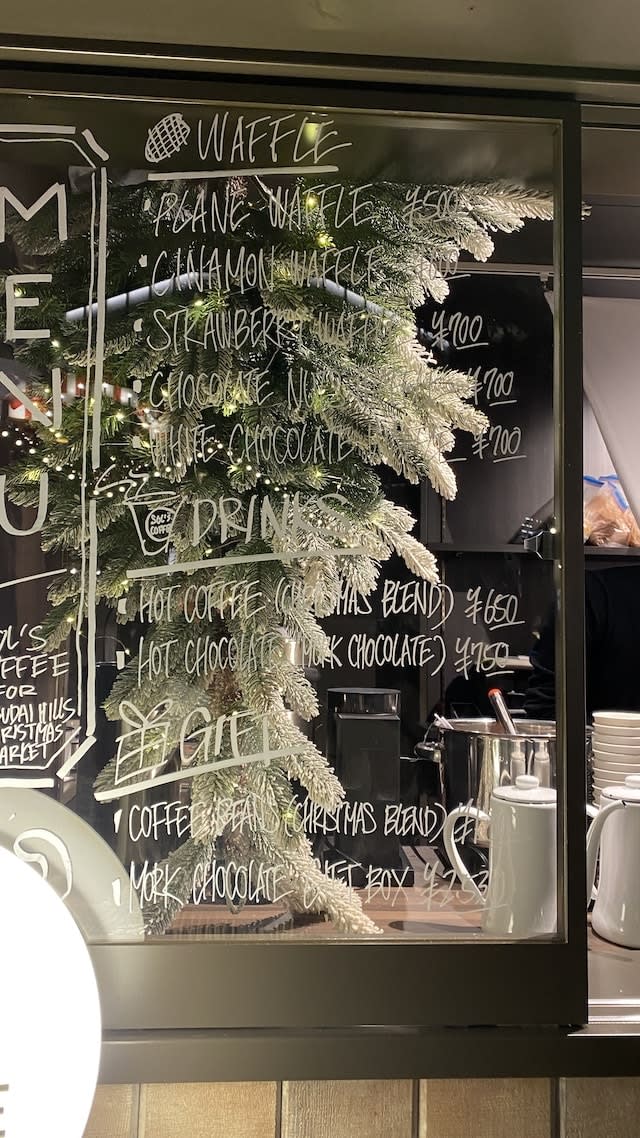 WAFFLE
PLANE WAFFLE ¥500
CINAMON WAFFLE
STRAWBERRY WAFFLE ¥700
CHOCOLATE ¥700
WHITE CHOCOLATE ¥700
DRINKS
SOL'S COFFEE
HOT COFFEE (CHRISTMAS BLEND) ¥650
HOT CHOCOLATE (MORK CHOCOLATE) ¥750
GIFT
COFFEE BEANS (CHRISTMAS BLEND)
MORK CHOCOLATE GIFT BOX
M
E
N
U
OL'S
FFEE
FOR
UDAI HILLS
RISTMAS
ARKET
E